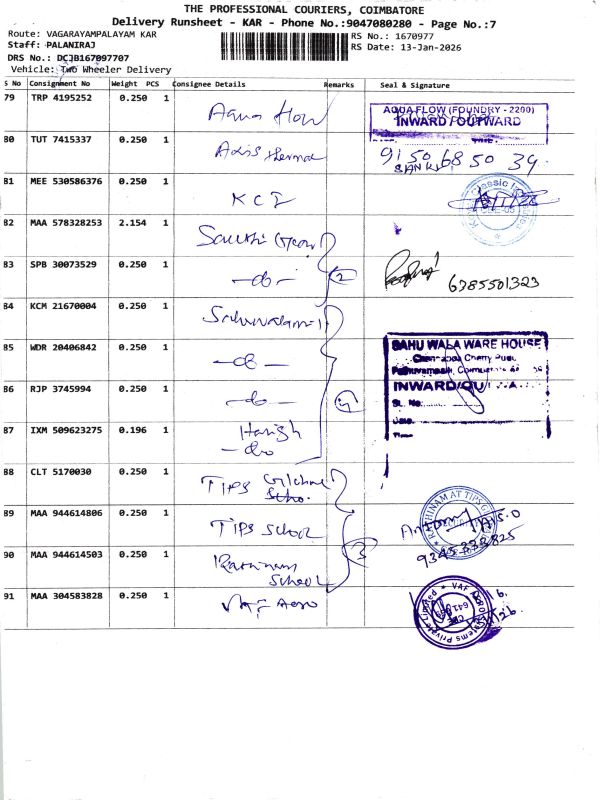 THE PROFESSIONAL COURIERS, COIMBATORE
Delivery Runsheet - KAR - Phone No.:9047080280 - Page No.:7
Route: VAGARAYAMPALAYAM KAR
RS No.: 1670977
Staff: PALANIRAJ
RS Date: 13-Jan-2026
DRS No.: DCJB167097707
Vehicle: Two Wheeler Delivery
S No Consignment No Weight PCS Consignee Details Remarks Seal & Signature
79 TRP 4195252 0.250 1 Aqua flow
AQUA FLOW (FOUNDRY - 2200)
INWARD / OUTWARD
80 TUT 7415337 0.250 1 Axis thermal 91 50 68 50 39.
81 MEE 530586376 0.250 1 KCI
Classic
82 MAA 578328253 2.154 1 Sakthi Gear
83 SPB 30073529 0.250 1 -do- 2 6785501323
84 KCM 21670004 0.250 1
SAHU WALA WARE HOUSE
85 WDR 20406842 0.250 1 -do-
86 RJP 3745994 0.250 1 -do- 4
INWARD/OU
SL. No.
Date.
Time
87 IXM 509623275 0.196 1 Harish
-do-
88 CLT 5170030 0.250 1 TIPS Global
Scho.
89 MAA 944614806 0.250 1 TIPS School
RATHINAM AT TIPS G
Antony A.S.O
9345333825
90 MAA 944614503 0.250 1 Rathinam
School 3
91 MAA 304583828 0.250 1 VAF Aero
VAF AERO Systems Private Limited